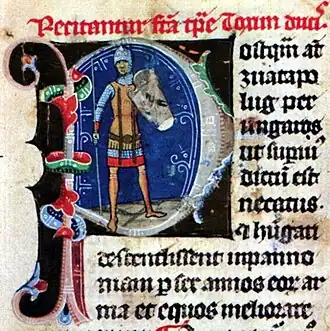 Recitantur fca tpe Toxun ducis
Postqm at
zuatapo
lug per
ungaros
ut superi
dictum est
necatus.
hugari
descendissent in panno
niam p sex annos eor ar
ma et equos meliorare